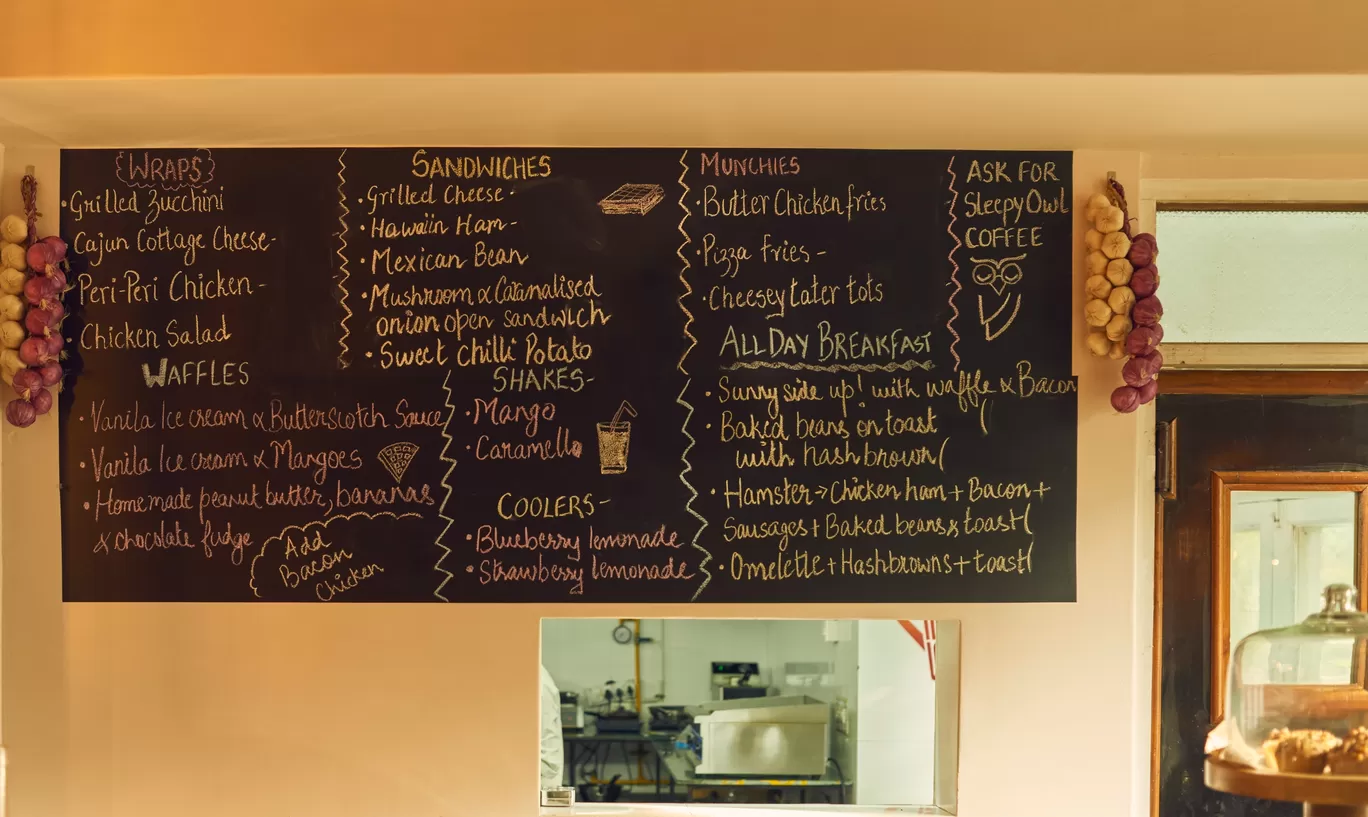 WRAPS
Grilled Zucchini
Cajun Cottage Cheese-
Peri-Peri Chicken -
Chicken Salad
WAFFLES
Vanila Ice cream & Butterscotch Sauce
Vanila Ice cream & Mangoes
Homemade peanut butter, bananas
& chocolate fudge
Add
Bacon
Chicken
SANDWICHES
Grilled Cheese -
Hawaiin Ham -
Mexican Bean
Mushroom & Caramalised
onion open sandwich
Sweet Chilli Potato
SHAKES-
Mango
Caramello
COOLERS-
Blueberry lemonade
Strawberry lemonade
MUNCHIES
Butter Chicken fries
Pizza fries -
Cheesey tater tots
ALL DAY BREAKFAST
Sunny side up! with waffle & Bacon
(
Baked beans on toast
with hashbrown(
Hamster→Chicken ham + Bacon +
Sausages + Baked beans & toast(
Omelette + Hashbrowns + toast(
ASK FOR
Sleepy Owl
COFFEE